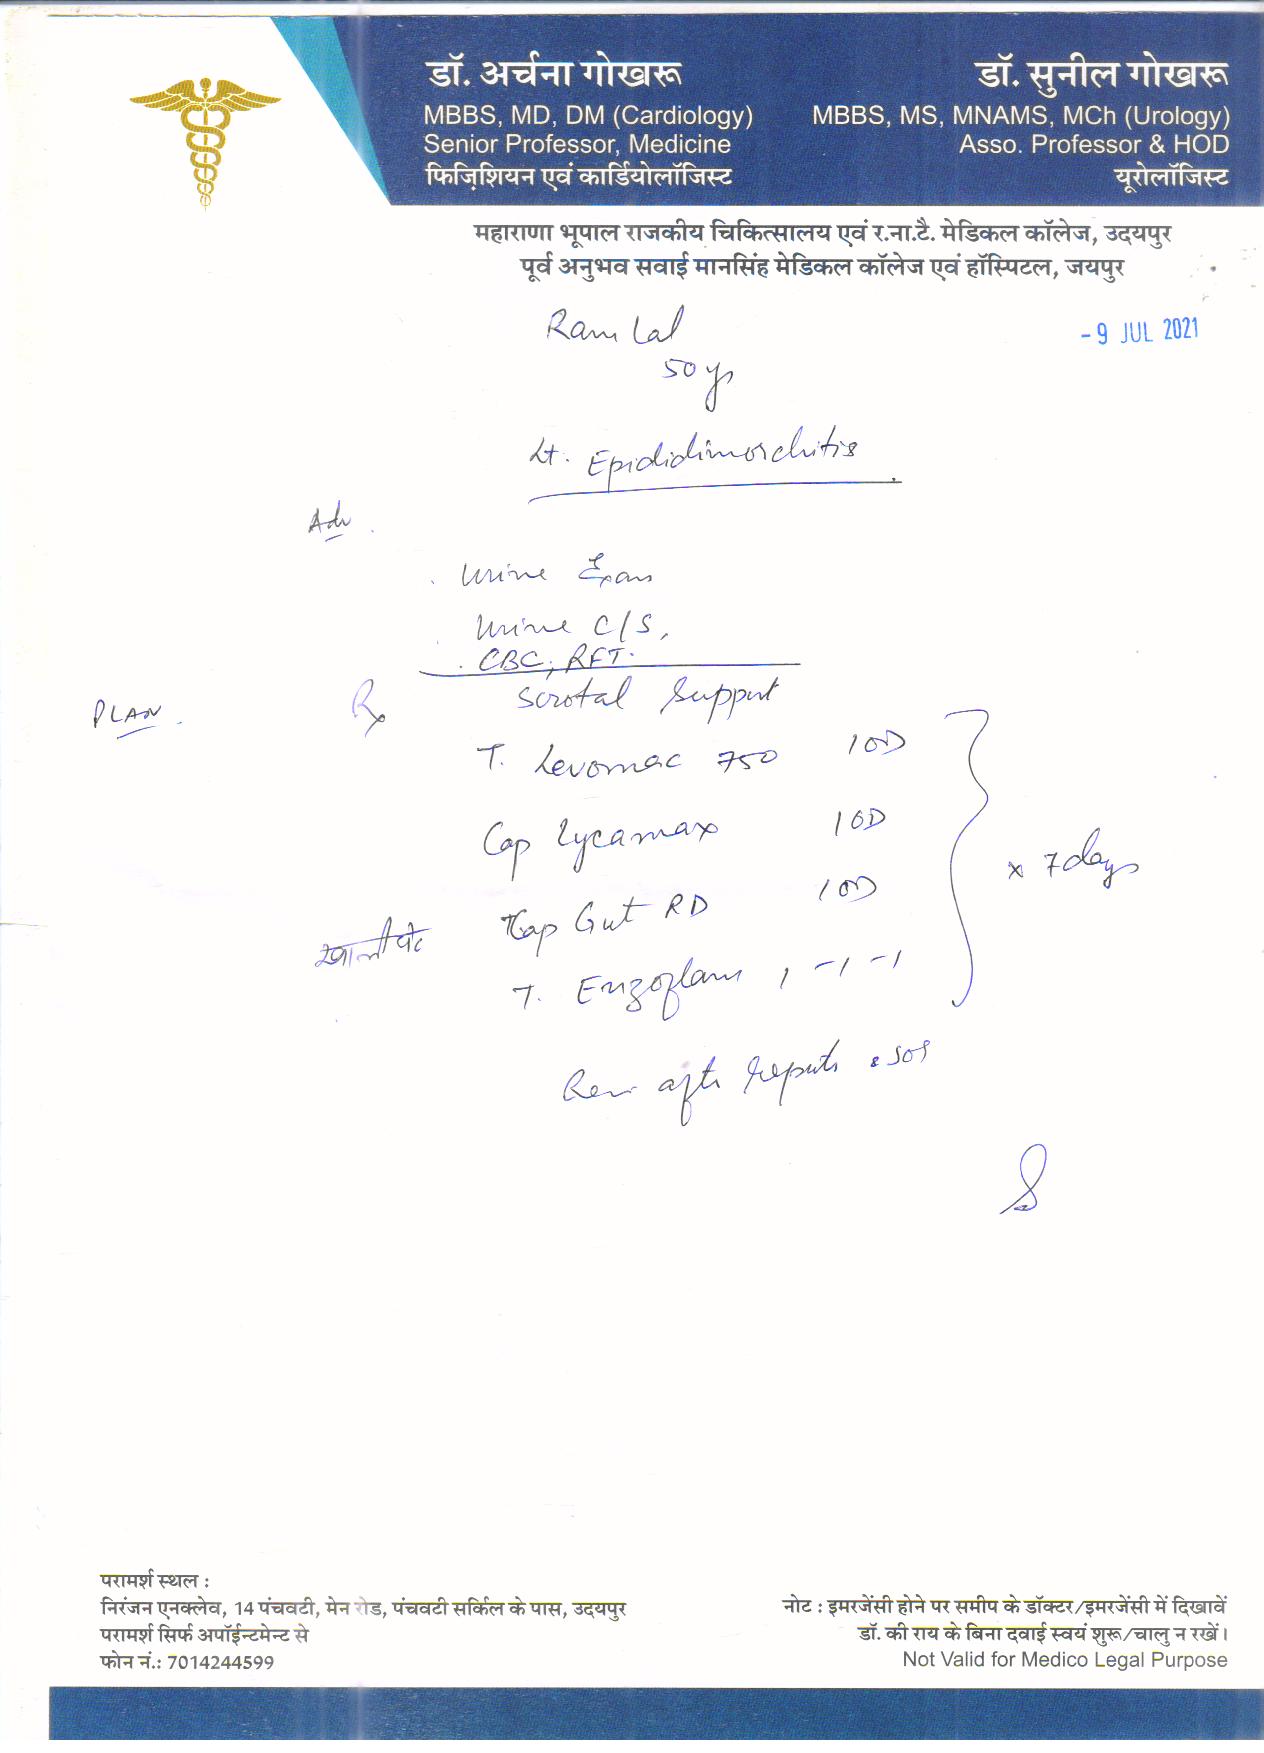 डॉ. अर्चना गोखरू
MBBS, MD, DM (Cardiology)
Senior Professor, Medicine
फिज़िशियन एवं कार्डियोलॉजिस्ट
डॉ. सुनील गोखरू
MBBS, MS, MNAMS, MCh (Urology)
Asso. Professor & HOD
यूरोलॉजिस्ट
महाराणा भूपाल राजकीय चिकित्सालय एवं र.ना.टै. मेडिकल कॉलेज, उदयपुर
पूर्व अनुभव सवाई मानसिंह मेडिकल कॉलेज एवं हॉस्पिटल, जयपुर
-9 JUL 2021
Ram Lal
50 ys
Lt. Epididimorchitis
Adv.
Urine Exam
Urine C/S,
CBC, RFT.
PLAN.
Rx Scrotal Support
T. Levomac 750 1 OD
Cap Lycamax 1 OD
खाली पेट Cap Gut RD 1 OD
T. Enzoflam 1 -1 -1
x 7 days
Rev. after reports & SOS
परामर्श स्थल :
निरंजन एनक्लेव, 14 पंचवटी, मेन रोड, पंचवटी सर्किल के पास, उदयपुर
परामर्श सिर्फ अपॉईन्टमेन्ट से
फोन नं.: 7014244599
नोट : इमरजेंसी होने पर समीप के डॉक्टर/इमरजेंसी में दिखावें
डॉ. की राय के बिना दवाई स्वयं शुरू/चालु न रखें।
Not Valid for Medico Legal Purpose